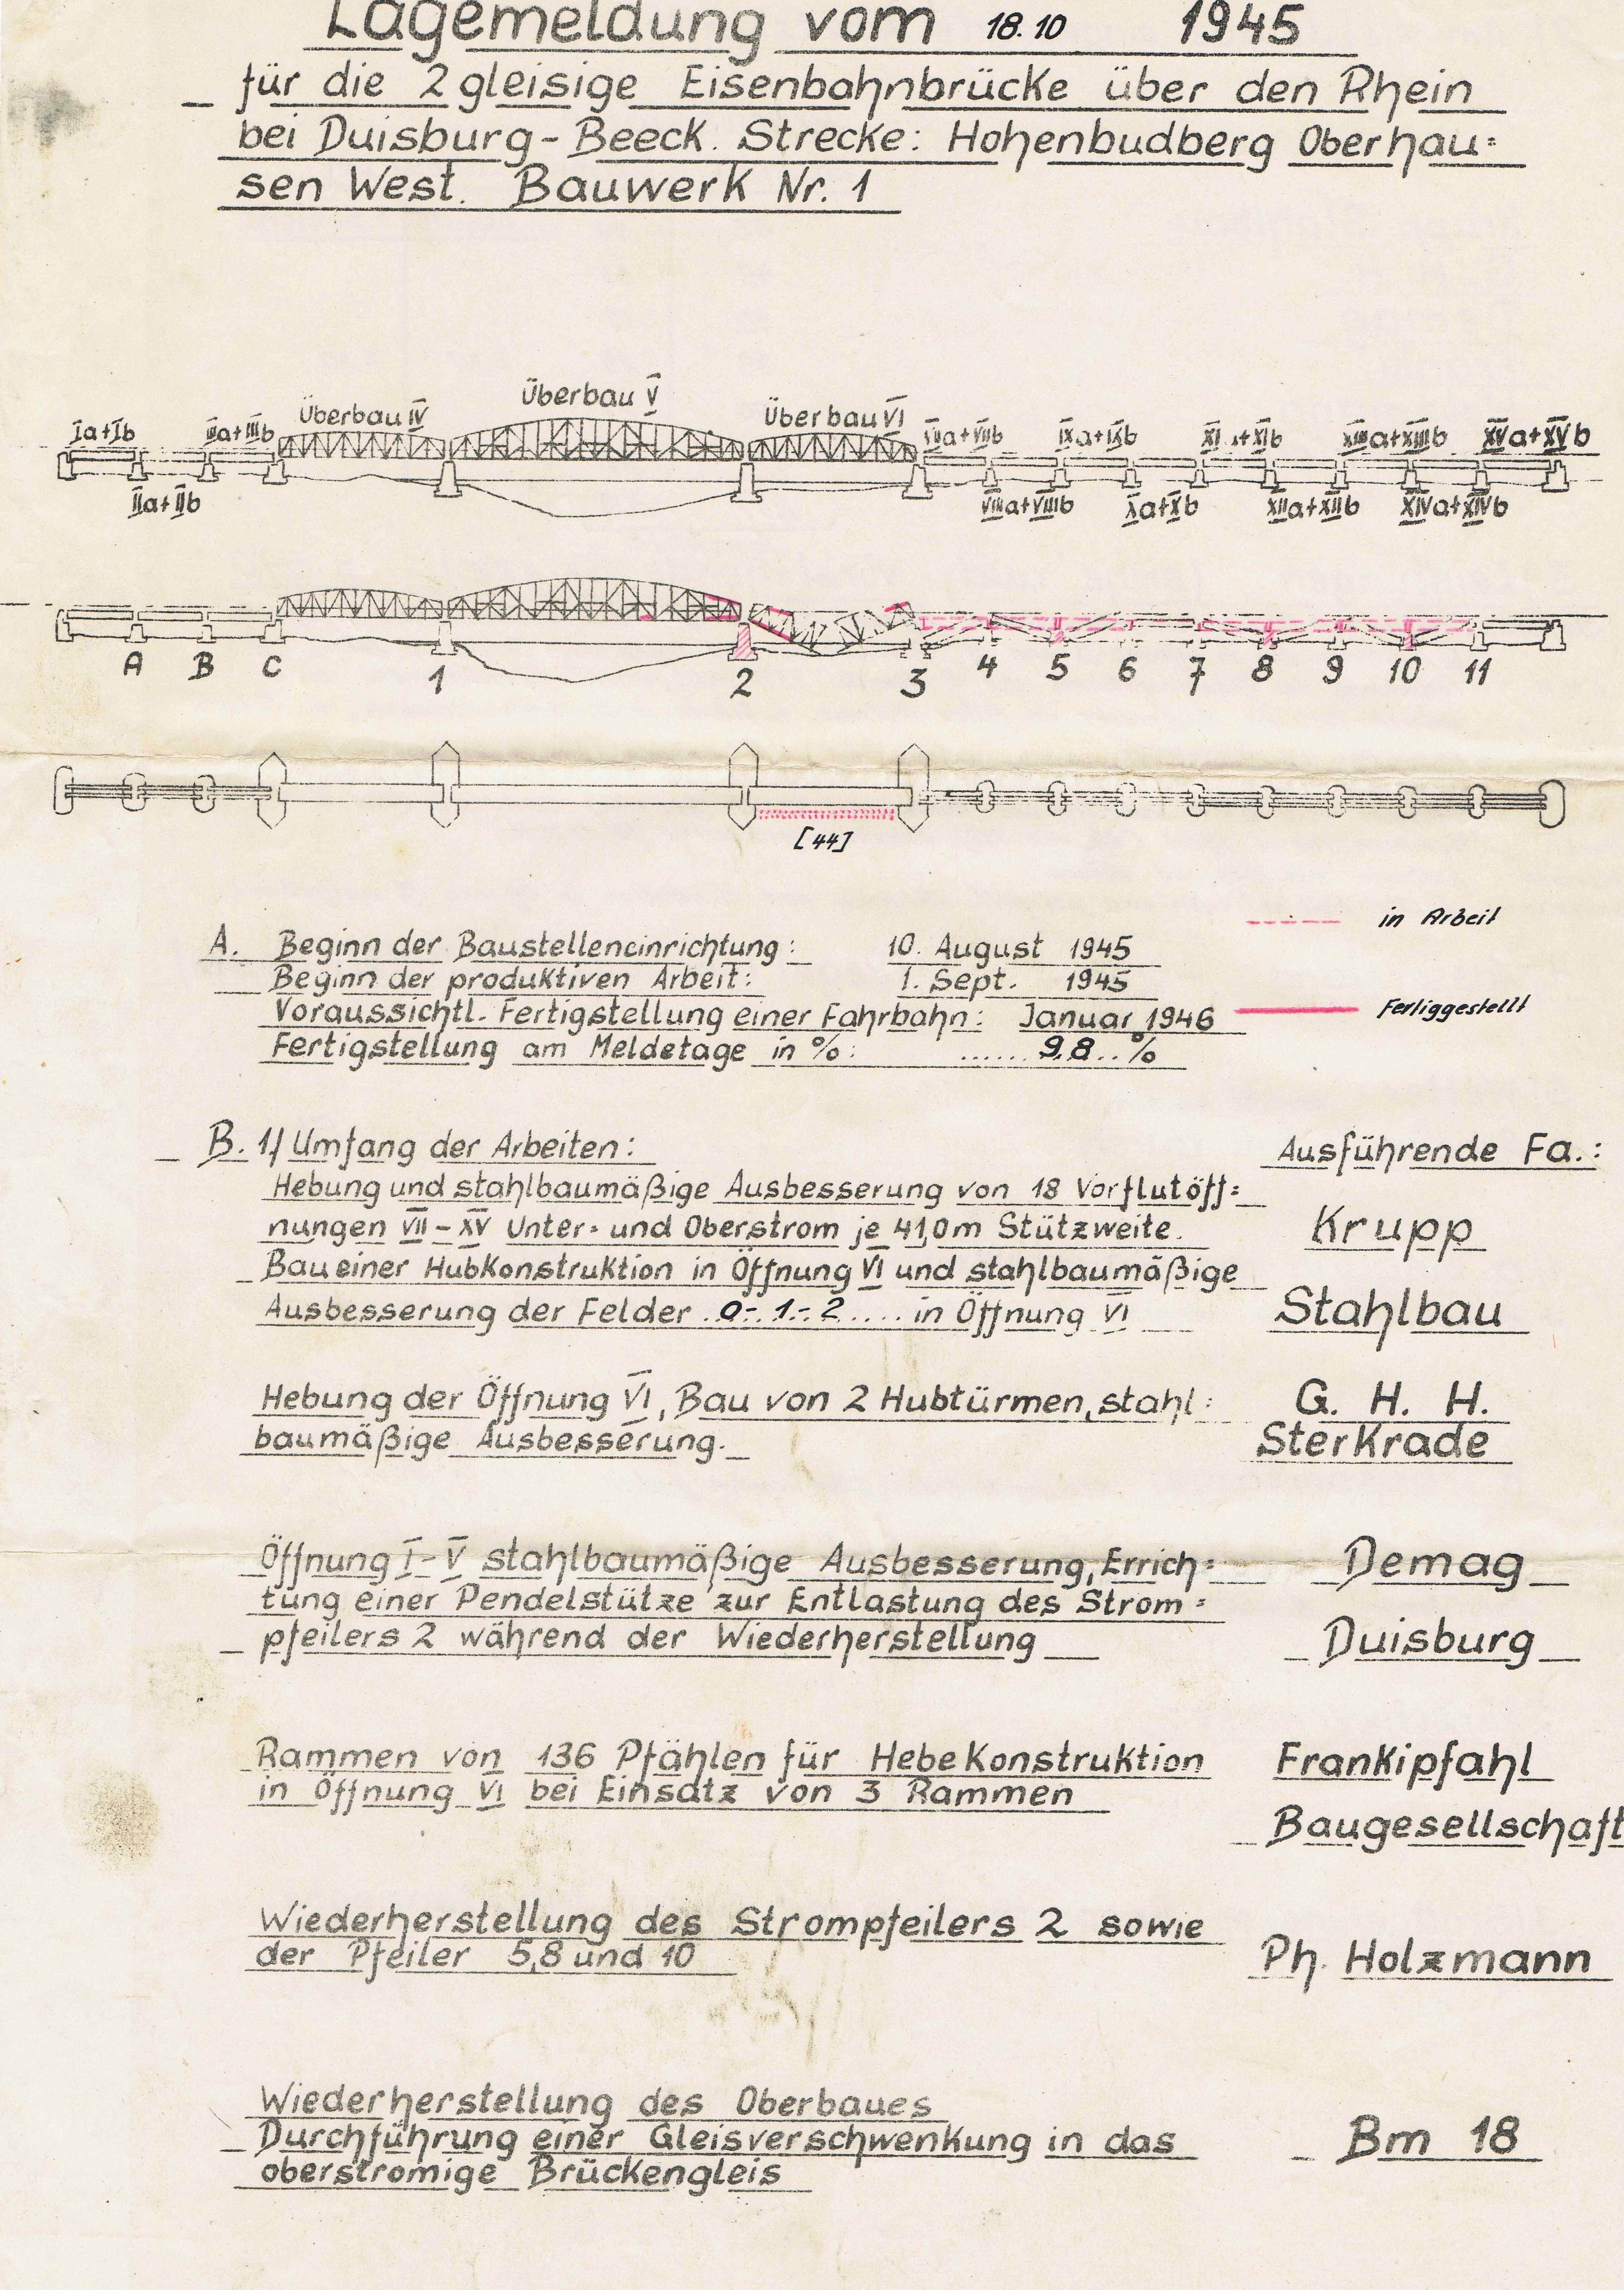 Lagemeldung vom 18.10 1945
für die 2gleisige Eisenbahnbrücke über den Rhein
bei Duisburg-Beeck. Strecke: Hohenbudberg Oberhau=
sen West. Bauwerk Nr. 1
Überbau V
Überbau IV Überbau VI
Ia+Ib IIIa+IIIb VIIa+VIIb IXa+IXb XI a+XIb XIIIa+XIIIb XVa+XVb
IIa+IIb VIIIa+VIIIb Xa+Xb XIIa+XIIb XIVa+XIVb
A B C 1 2 3 4 5 6 7 8 9 10 11
[44]
in Arbeit
A. Beginn der Baustelleneinrichtung: 10. August 1945
Beginn der produktiven Arbeit: 1. Sept. 1945
Voraussichtl. Fertigstellung einer Fahrbahn: Januar 1946 Fertiggestellt
Fertigstellung am Meldetage in %: ...... 9,8 .. %
B. 1/ Umfang der Arbeiten: Ausführende Fa.:
Hebung und stahlbaumäßige Ausbesserung von 18 Vorflutöff=
nungen VII-XV Unter- und Oberstrom je 41,0m Stützweite. Krupp
Bau einer Hubkonstruktion in Öffnung VI und stahlbaumäßige
Ausbesserung der Felder ..0-.1.-.2..... in Öffnung VI Stahlbau
Hebung der Öffnung VI, Bau von 2 Hubtürmen, stahl= G. H. H.
baumäßige Ausbesserung. Sterkrade
Öffnung I-V stahlbaumäßige Ausbesserung, Errich= Demag
tung einer Pendelstütze zur Entlastung des Strom=
pfeilers 2 während der Wiederherstellung Duisburg
Rammen von 136 Pfählen für Hebekonstruktion Frankipfahl
in Öffnung VI bei Einsatz von 3 Rammen
Baugesellschaft
Wiederherstellung des Strompfeilers 2 sowie
der Pfeiler 5,8 und 10 Ph. Holzmann
Wiederherstellung des Oberbaues
Durchführung einer Gleisverschwenkung in das Bm 18
oberstromige Brückengleis